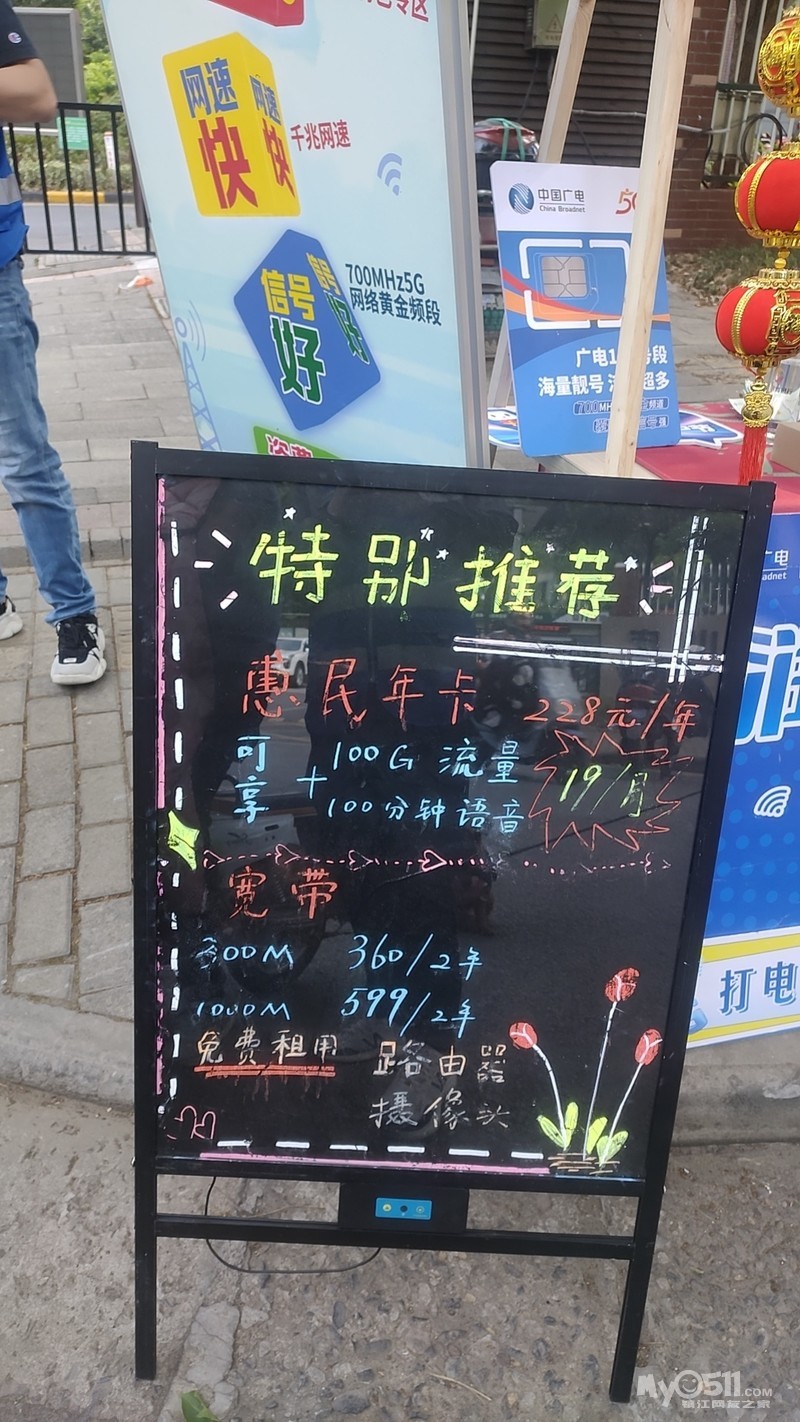 网速
快
网速
快
千兆网速
信号
好
信号
好
700MHz5G
网络黄金频段
中国广电
China Broadnet
广电1
号段
海量靓号
超多
特别推荐
惠民年卡 228元/年
可享 + 100G 流量
100分钟语音
19/月
宽带
300M 360/2年
1000M 599/2年
免费租用 路由器
摄像头
打电
MYO511.COM
镇江网友之家